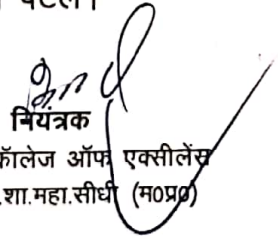 नियंत्रक
कॉलेज ऑफ एक्सीलेंस
शा.महा.सीधी (म0प्र0)